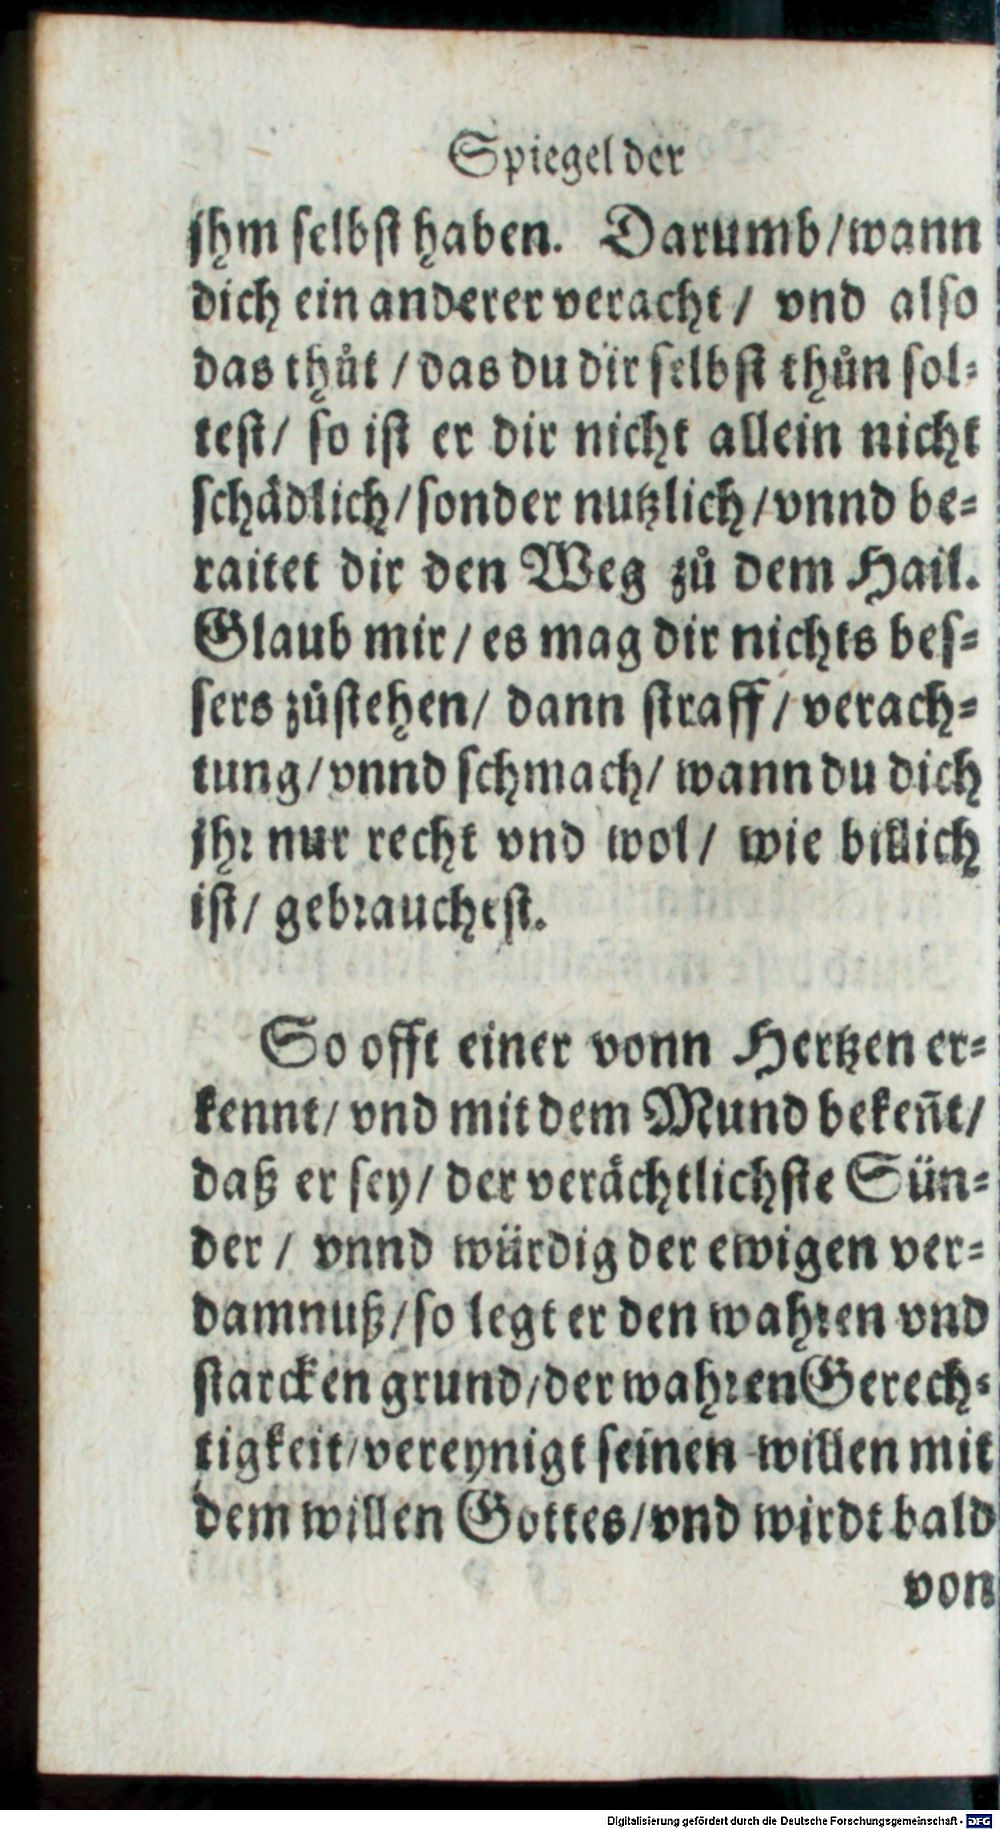 Spiegel der
jhm selbst haben. Darumb/wann
dich ein anderer veracht/ vnd also
das thůt/das du dir selbst thůn sol⸗
test/ so ist er dir nicht allein nicht
schädlich/sonder nutzlich/vnnd be⸗
raitet dir den Weg zů dem Hail.
Glaub mir/ es mag dir nichts bes⸗
sers zůstehen/ dann straff/ verach⸗
tung/vnnd schmach/ wann du dich
jhr nur recht vnd wol/ wie billich
ist/ gebrauchest.
So offt einer vonn Hertzen er⸗
kennt/ vnd mit dem Mund bekeñt/
daß er sey/ der verächtlichste Sün⸗
der/ vnnd würdig der ewigen ver⸗
damnuß/so legt er den wahren vnd
starcken grund/der wahren Gerech⸗
tigkeit/vereynigt seinen willen mit
dem willen Gottes/vnd wirdt bald
von
Digitalisierung gefördert durch die Deutsche Forschungsgemeinschaft - DFG